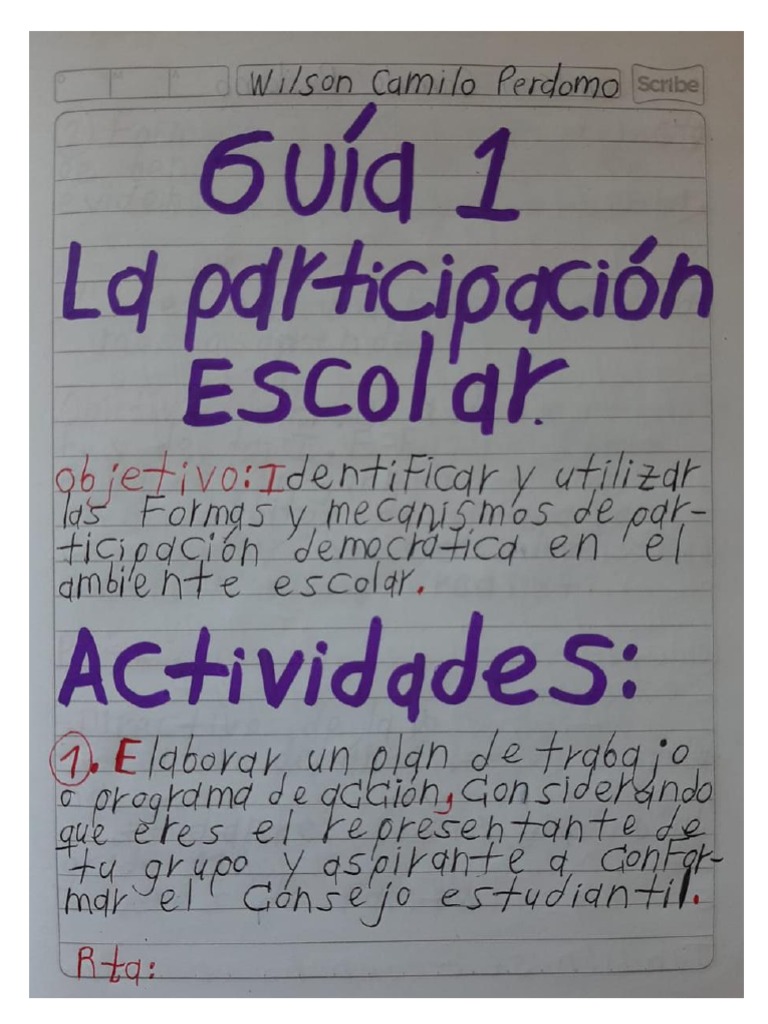 D M A
Wilson Camilo Perdomo Scribe
Guía 1
La participación
Escolar.
Objetivo: Identificar y utilizar
las Formas y mecanismos de par-
ticipación democrática en el
ambiente escolar.
Actividades:
1. Elaborar un plan de trabajo
o programa de acción, Considerando
que eres el representante de
tu grupo y aspirante a Confor-
mar el Consejo estudiantil.
Rta: